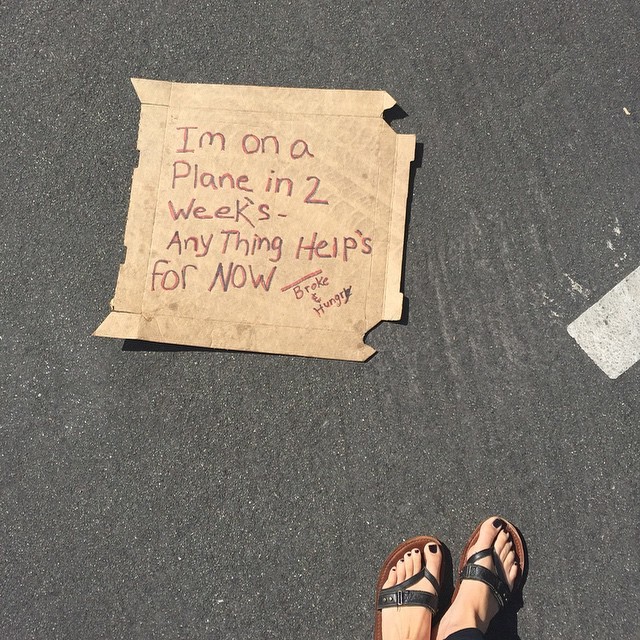 Im on a
Plane in 2
Week's -
Any Thing Help's
For NOW
Broke
&
Hungry